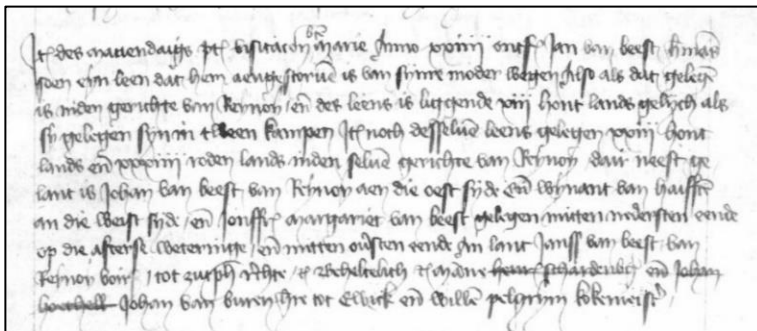 Itē des manendaigs pt visitacōn btē marie Anno xxiiii ontfē Jan van beest hmans
soen eyn leen dat hem aengestoruē is van synre moder wegen Also als dat gelegē
is inden gerichte van Reynoy / eñ des leens is liggende xiii hont lands gelijch als
sy gelegen syn in tween kampen Itē noch desseluē leens gelegen xxiii hont
lands eñ xxxiiii roden lands inden seluē gerichte van Reynoy dair neest ge
lant is Johan van beest van Reynoy aen die oest syde Eñ wynant van haifftē
an die west syde / eñ Jonffē margariet van beest gelegen mitten nedersten eende
op die afterse weteringe / eñ mitten ouersten eende An lant Janss van beest van
Reynoy voirs / tot zutphē rechte / eñ eñ Johan
Johan van buren hre tot Ewick eñ willē pelgrim kokemeister